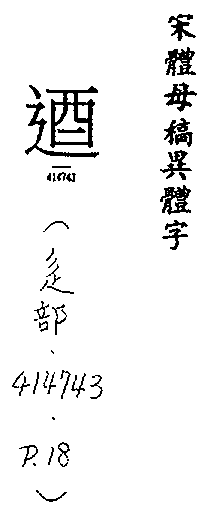 宋體母稿異體字
逎
414743
（辵部．414743．P.18）